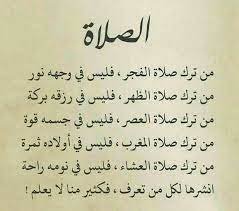 الصلاة
من ترك صلاة الفجر ، فليس في وجهه نور
من ترك صلاة الظهر ، فليس في رزقه بركة
من ترك صلاة العصر ، فليس في جسمه قوة
من ترك صلاة المغرب ، فليس في أولاده ثمرة
من ترك صلاة العشاء ، فليس في نومه راحة
انشرها لكل من تعرف ، فكثير منا لا يعلم !